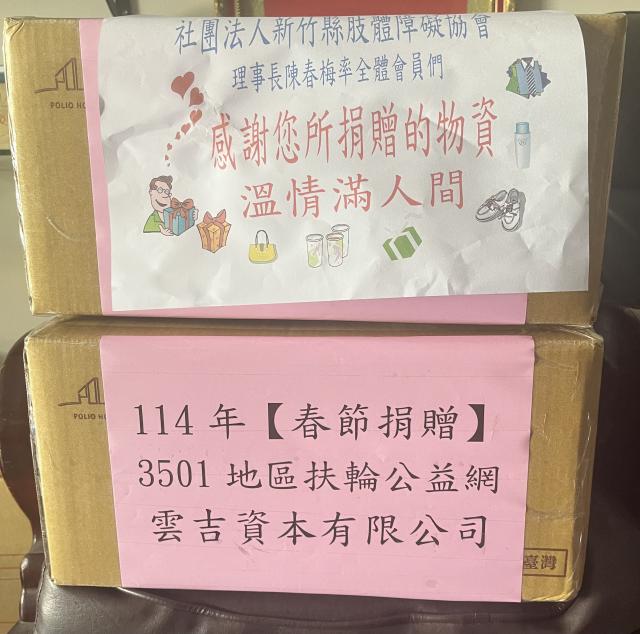 社團法人新竹縣肢體障礙協會
理事長陳春梅率全體會員們
感謝您所捐贈的物資
溫情滿人間
114年【春節捐贈】
3501地區扶輪公益網
雲吉資本有限公司
POLIO
臺灣